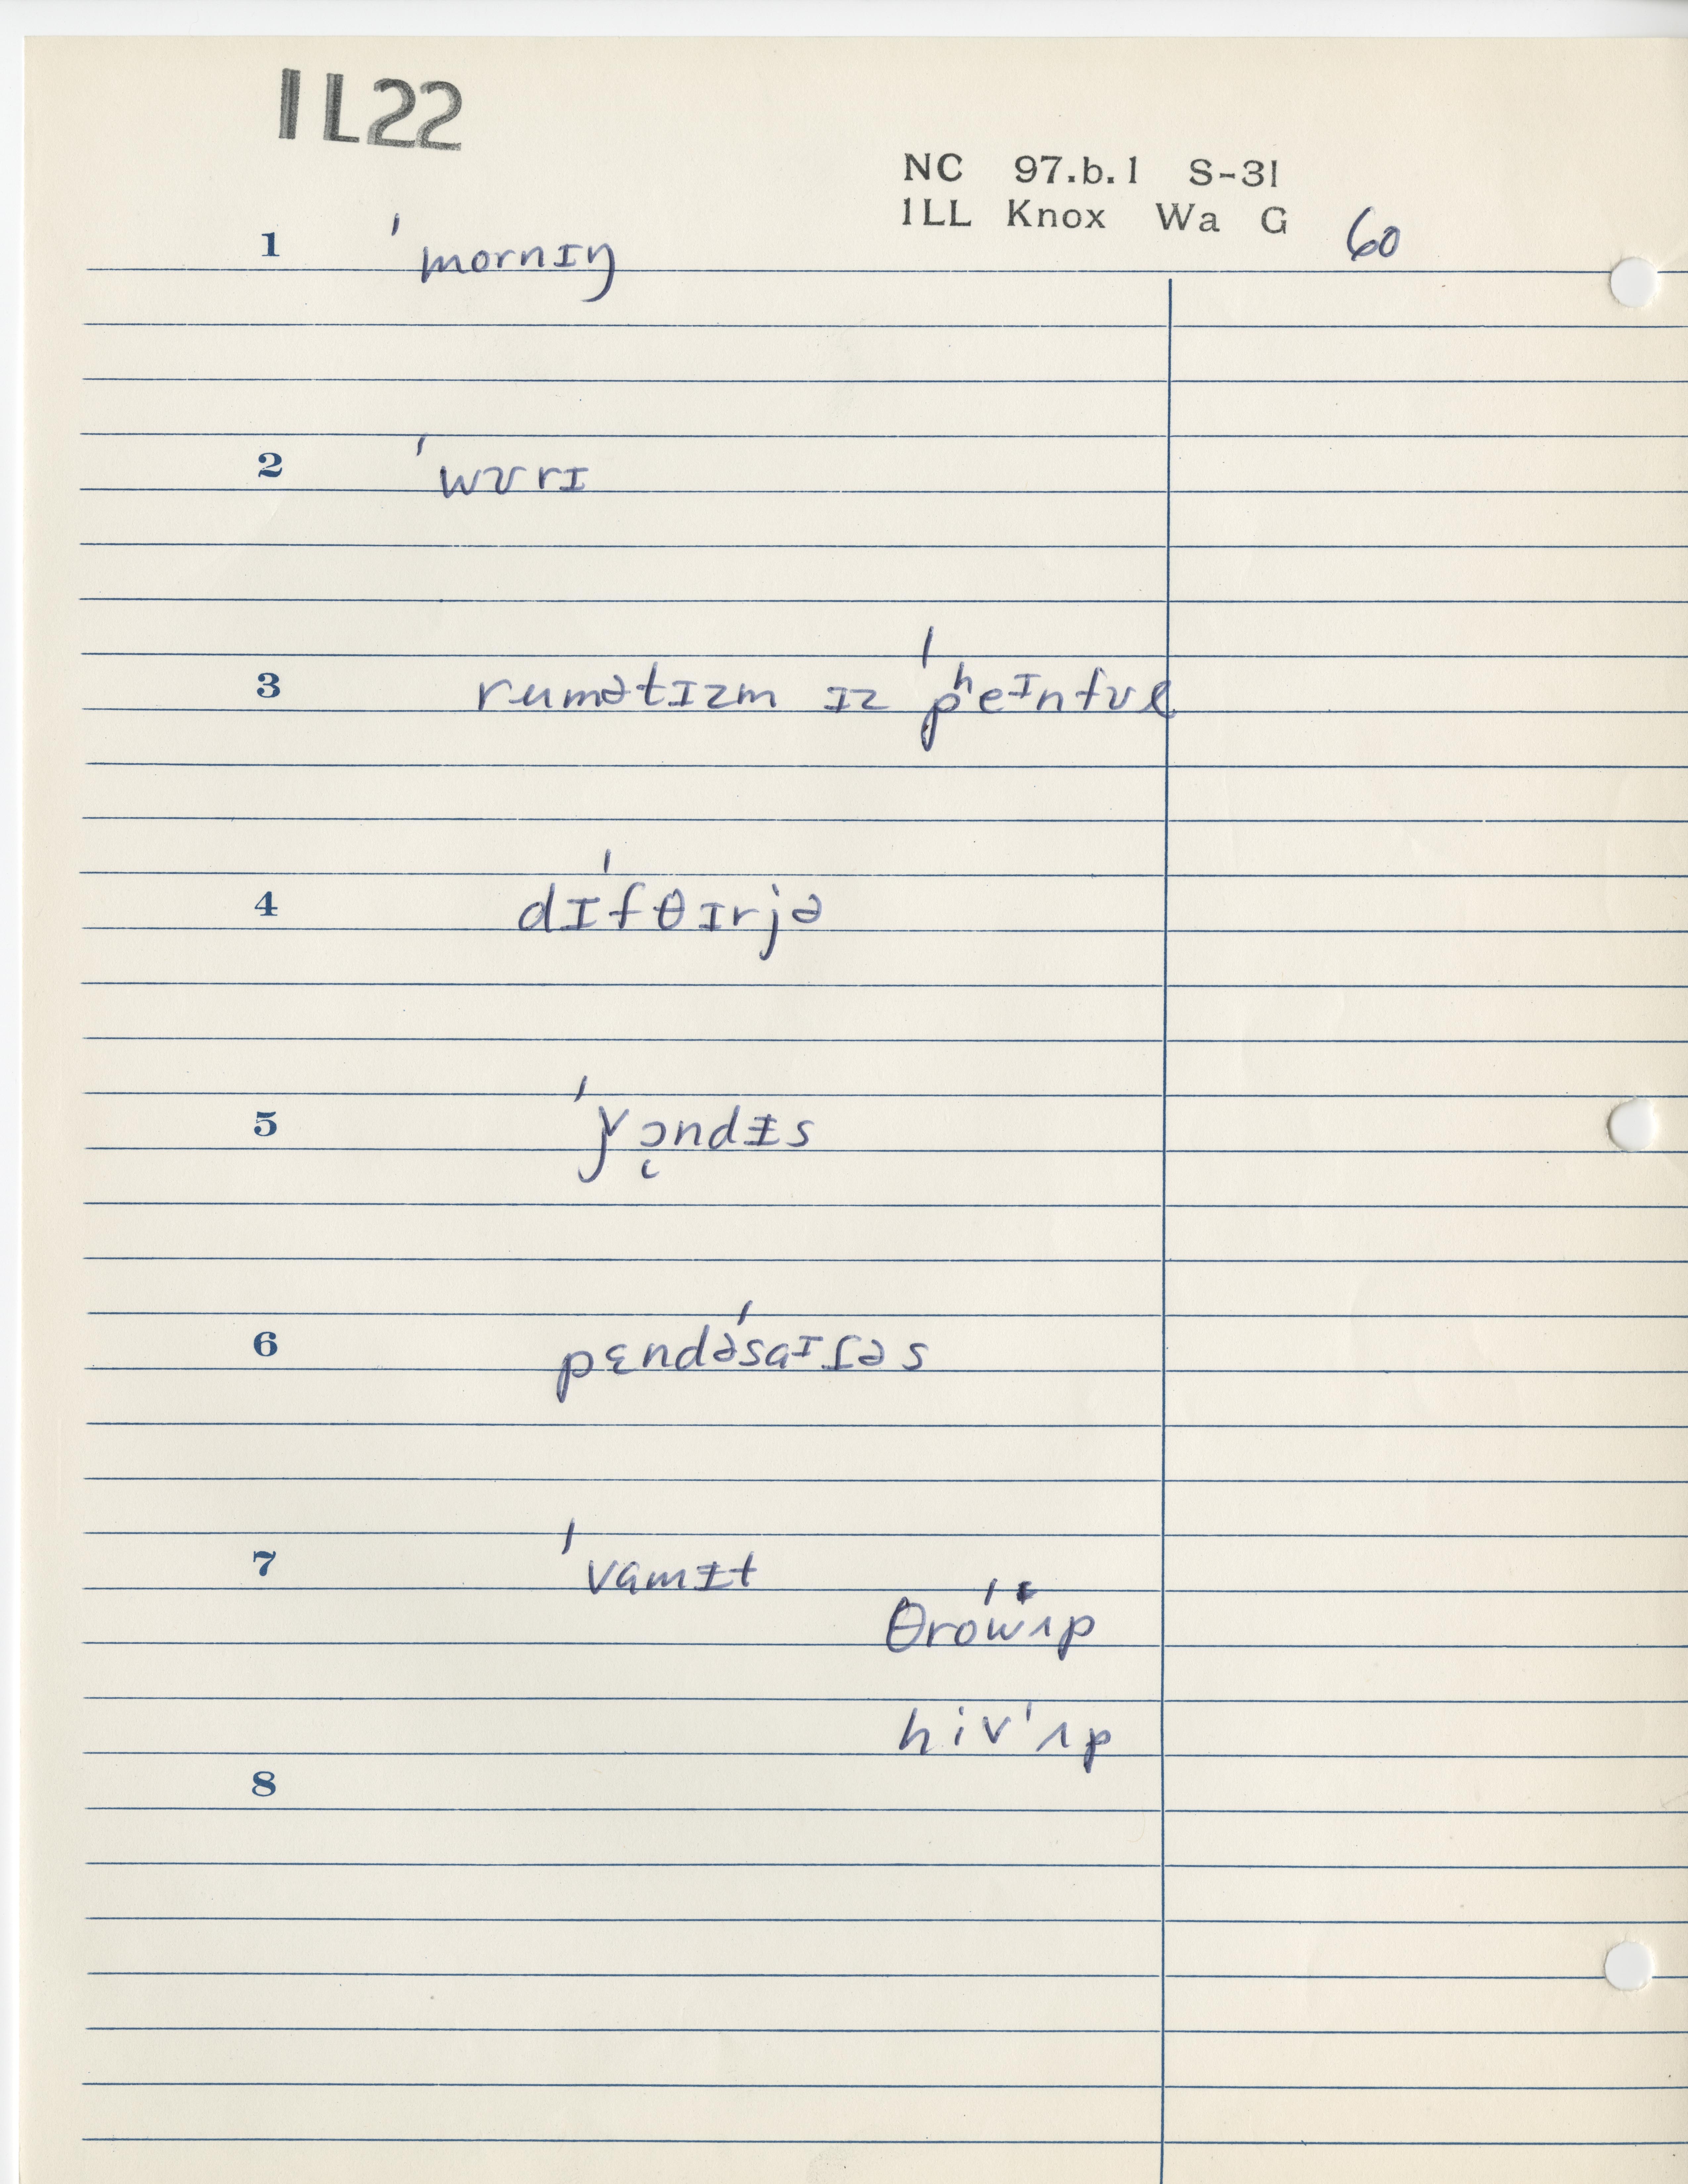 IL22
NC 97.b.1 S-31
ILL Knox Wa G 60
1 ˈmornɪŋ
2 ˈwʊrɪ
3 rumətɪzm ɪz ˈpʰeɪnfʊl
4 dɪfˈθɪrjə
5 ˈǰɔ̜ndɪ̵s
6 pɛndəˈsaɪɾəs
7 ˈvɑmɪ̵t
θroˈwˈʌp
hivˈʌp
8